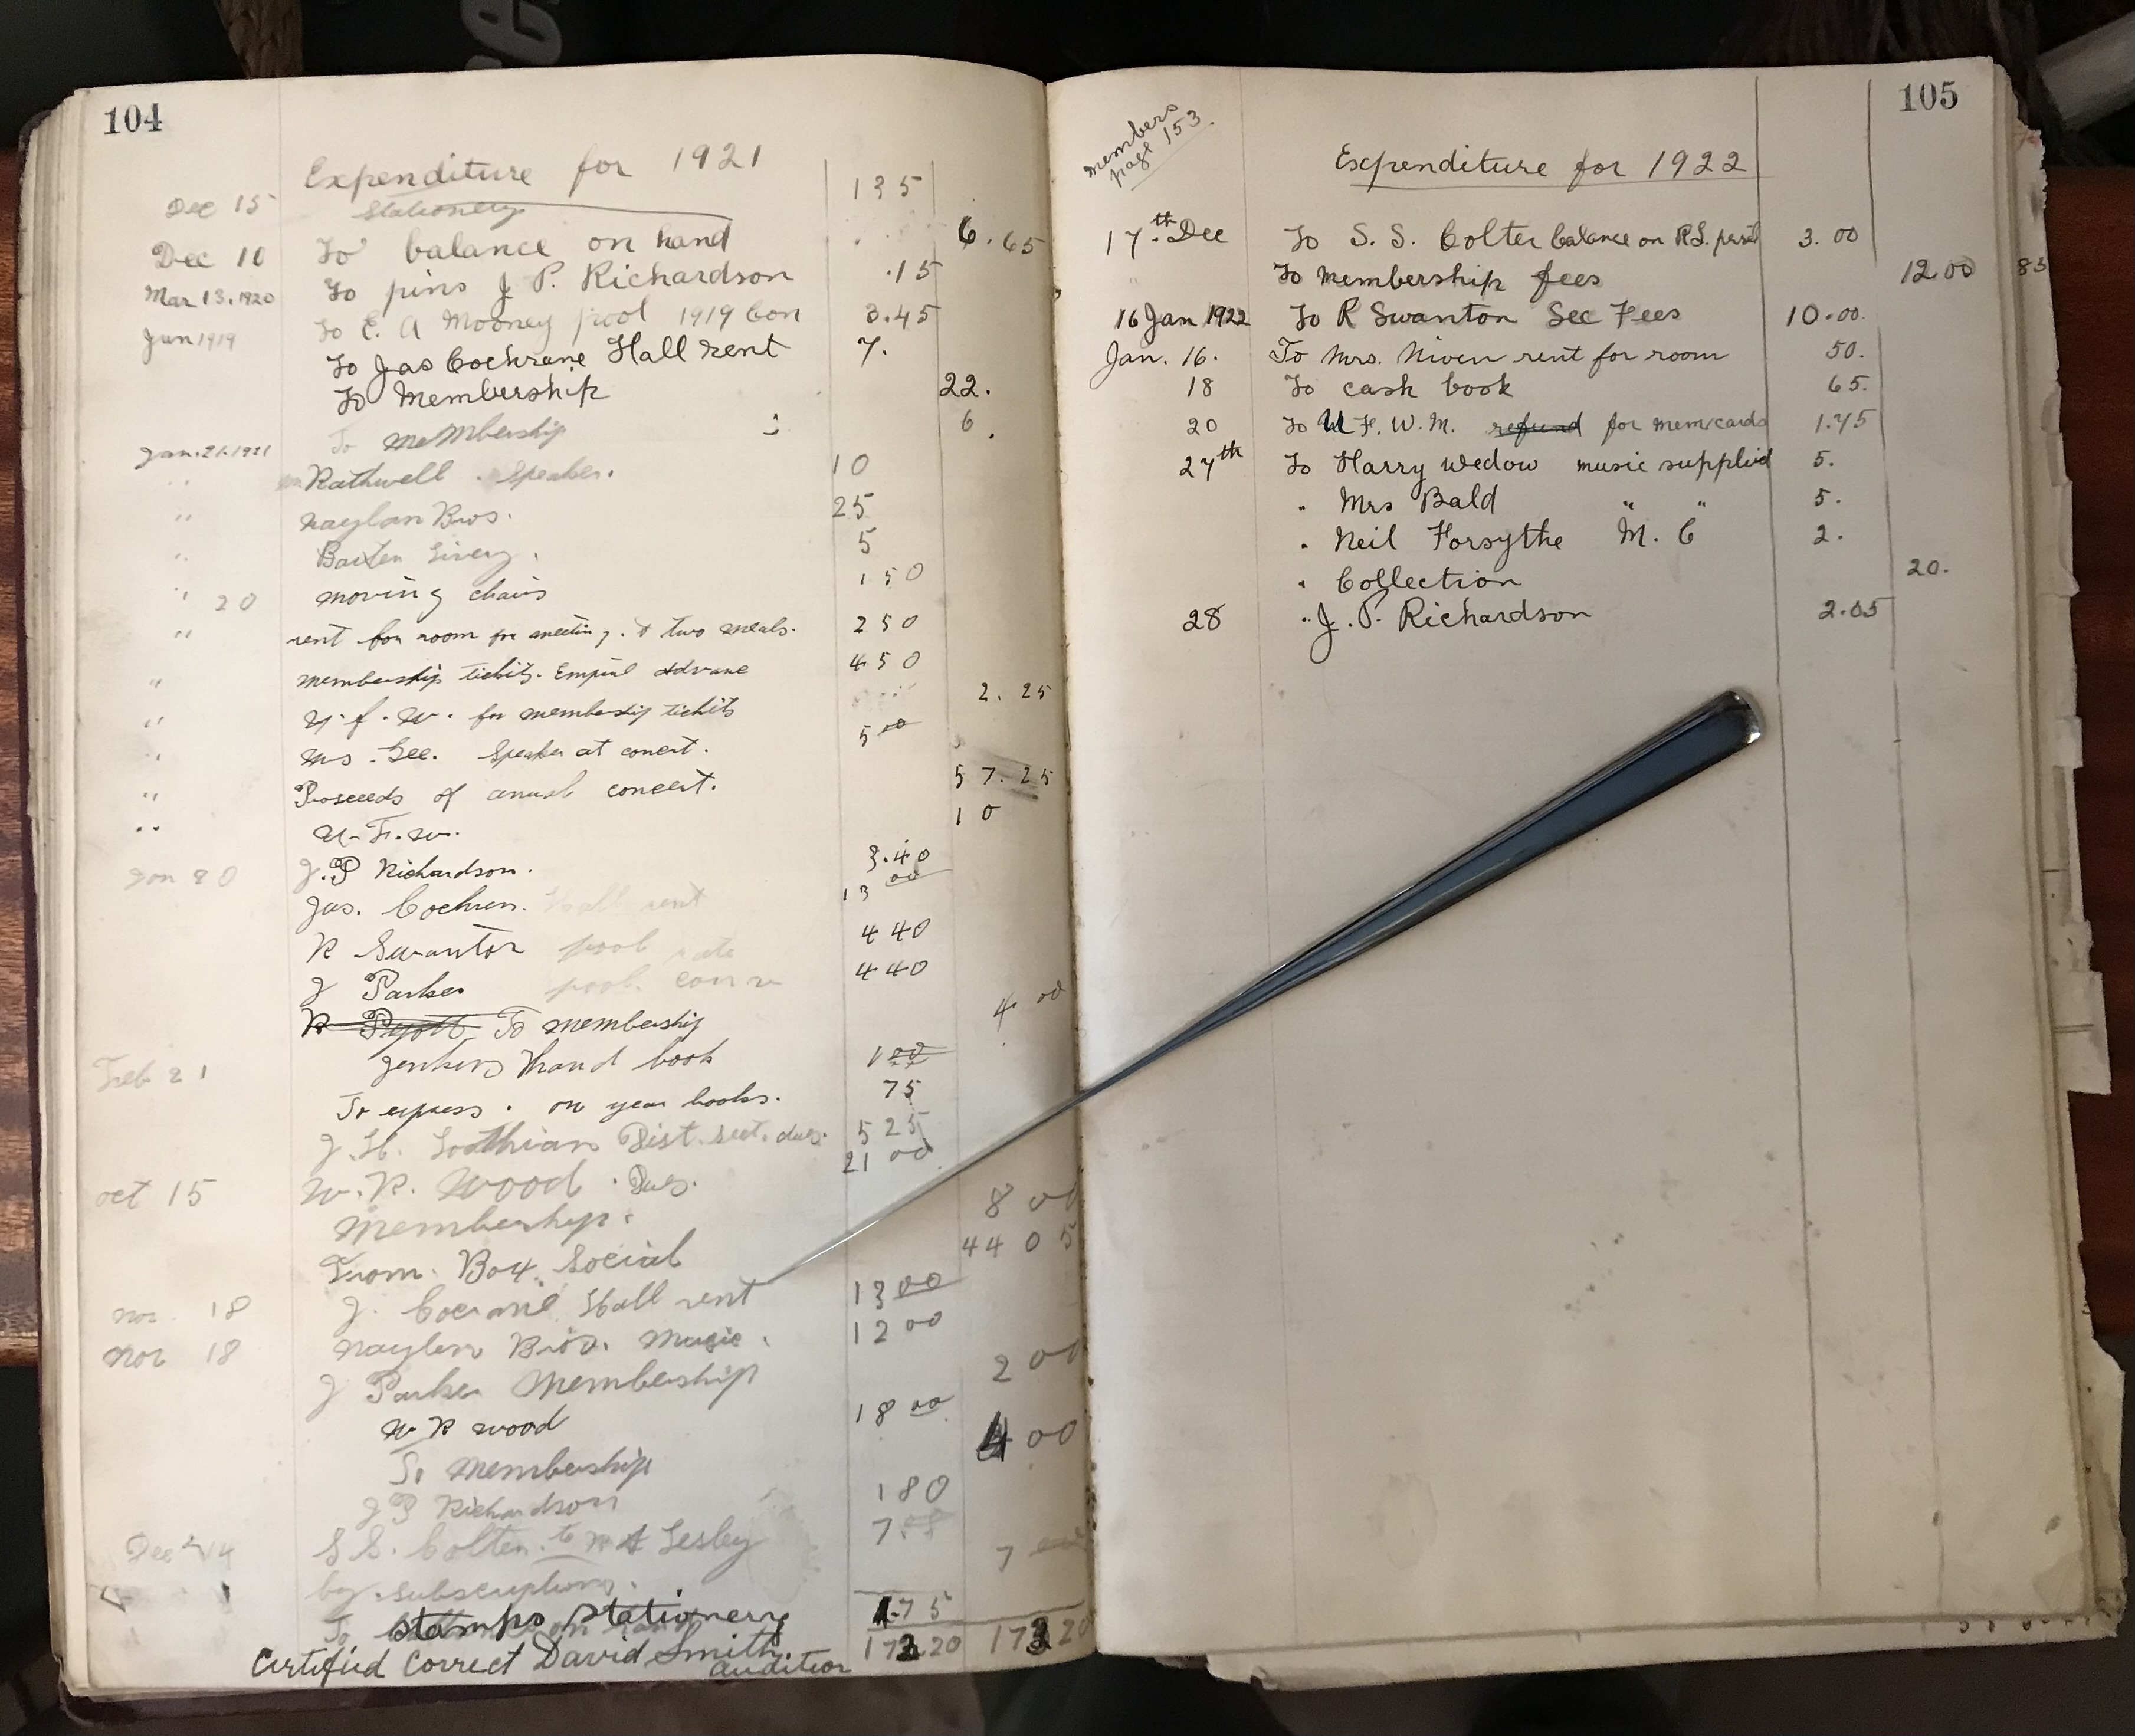 104
Expenditure for 1921
Dec 15 Stationery 135
Dec 10 To balance on hand 6.65
Mar 13.1920 To pins J P. Richardson .15
Jan 1919 To E. A Mooney pool 1919 Con 3.45
To Jas Cochrane Hall rent 7.
To Membership 22.
To Membership 6.
Jan.21.1921 Rathwell Speaker. 10
" Naylan Bros. 25
" Livery. 5
" 20 moving chairs 150
" rent for room for meeting. & two meals. 250
" membership tickits. Empial Advane 450
" U.F.W. for membership tickits 2.25
" Mrs. Gee. Speaker at concert. 5 00
" Proseeds of annual concert. 57.25
" U.F.W. 10
Jan 80 J.P Richardson. 3.40
Jas. Cochren. Hall rent 13 00
R Swanton pool rate 440
J Parker pool 440
R Pyott To membership 4 00
Feb 21 hand book 1 00
To express. on year books. 75
J.H. Loothian Dist. sect. dues. 5 25
oct 15 W.R. Wood. Dues. 21 00
Membership. 8 00
From. Box. Social 44 05
Nov. 18 J. Cocrane Hall rent 13 00
Nov 18 Naylen Bros. Music. 12 00
J Parker Membership 2 00
W R Wood 18 00
To Membership 4 00
J P Richardson 180
Dec 14 S.S. Colter. to Lesley 7.
by. subscriptions. 7
To stamps Stationery 1.75
173 20 173 20
Certified Correct David Smith
auditior
105
members
page 153.
Expenditure for 1922
17.th Dec To S. S. Colter balance on 3.00
To Membership fees 12.00 83
16 Jan 1922 To R Swanton Sec Fees 10.00.
Jan. 16. To Mrs. Niven rent for room 50.
18 To cash book 65.
20 To U F. W. M. refund for mem/cards 1.75
27th To Harry Wedow music supplied 5.
" Mrs Bald " " 5.
" Neil Forsythe M. C 2.
" Collection 20.
28 " J. P. Richardson 2.05